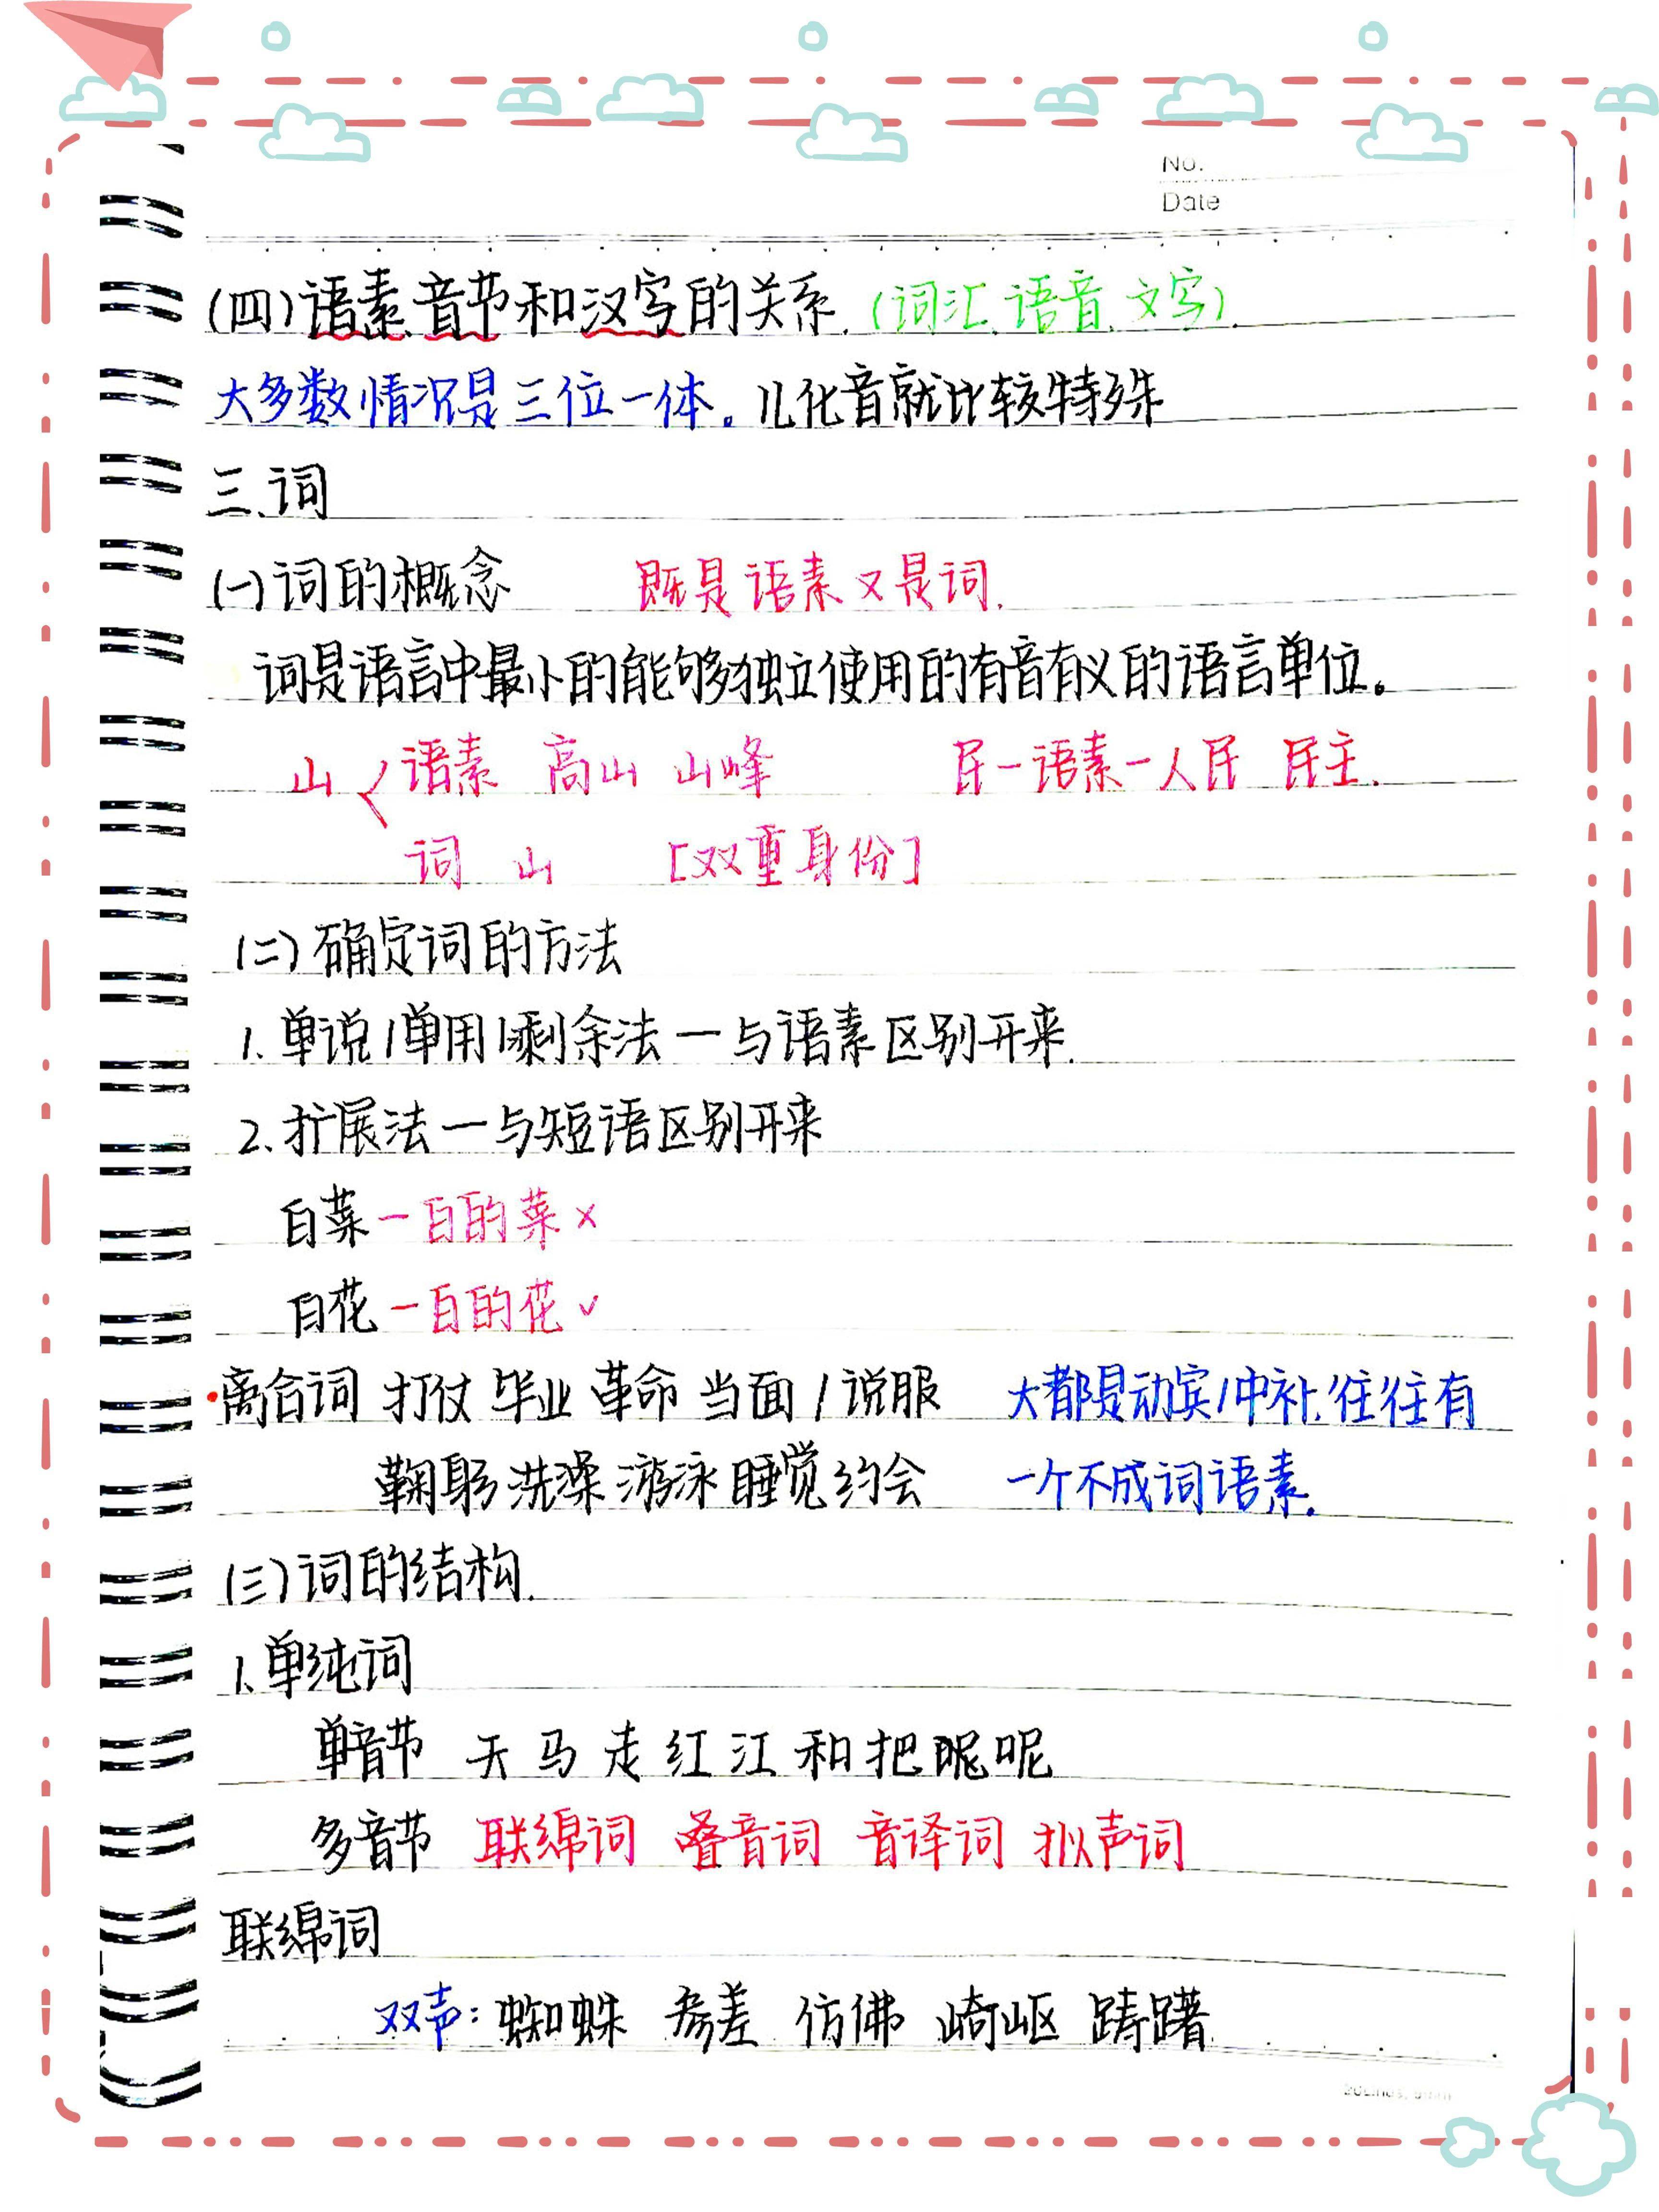 No.
Date
(四)语素、音节和汉字的关系.(词汇、语音、文字).
大多数情况是三位一体。儿化音就比较特殊
三、词
(一)词的概念 既是语素又是词.
词是语言中最小的能够独立使用的有音有义的语言单位。
山〈语素 高山 山峰 民一语素一人民 民主.
词 山 [双重身份]
(二)确定词的方法
1.单说/单用/剩余法一与语素区别开来.
2.扩展法一与短语区别开来
白菜一白的菜×
白花一白的花✓
·离合词 打仗 毕业 革命 当面/说服 大都是动宾/中补,往往有
鞠躬 洗澡 游泳 睡觉 约会 一个不成词语素.
(三)词的结构.
1.单纯词
单音节 天 马 走 红 江 和 把 呢
多音节 联绵词 叠音词 音译词 拟声词
联绵词
双声:蜘蛛 参差 仿佛 崎岖 踌躇